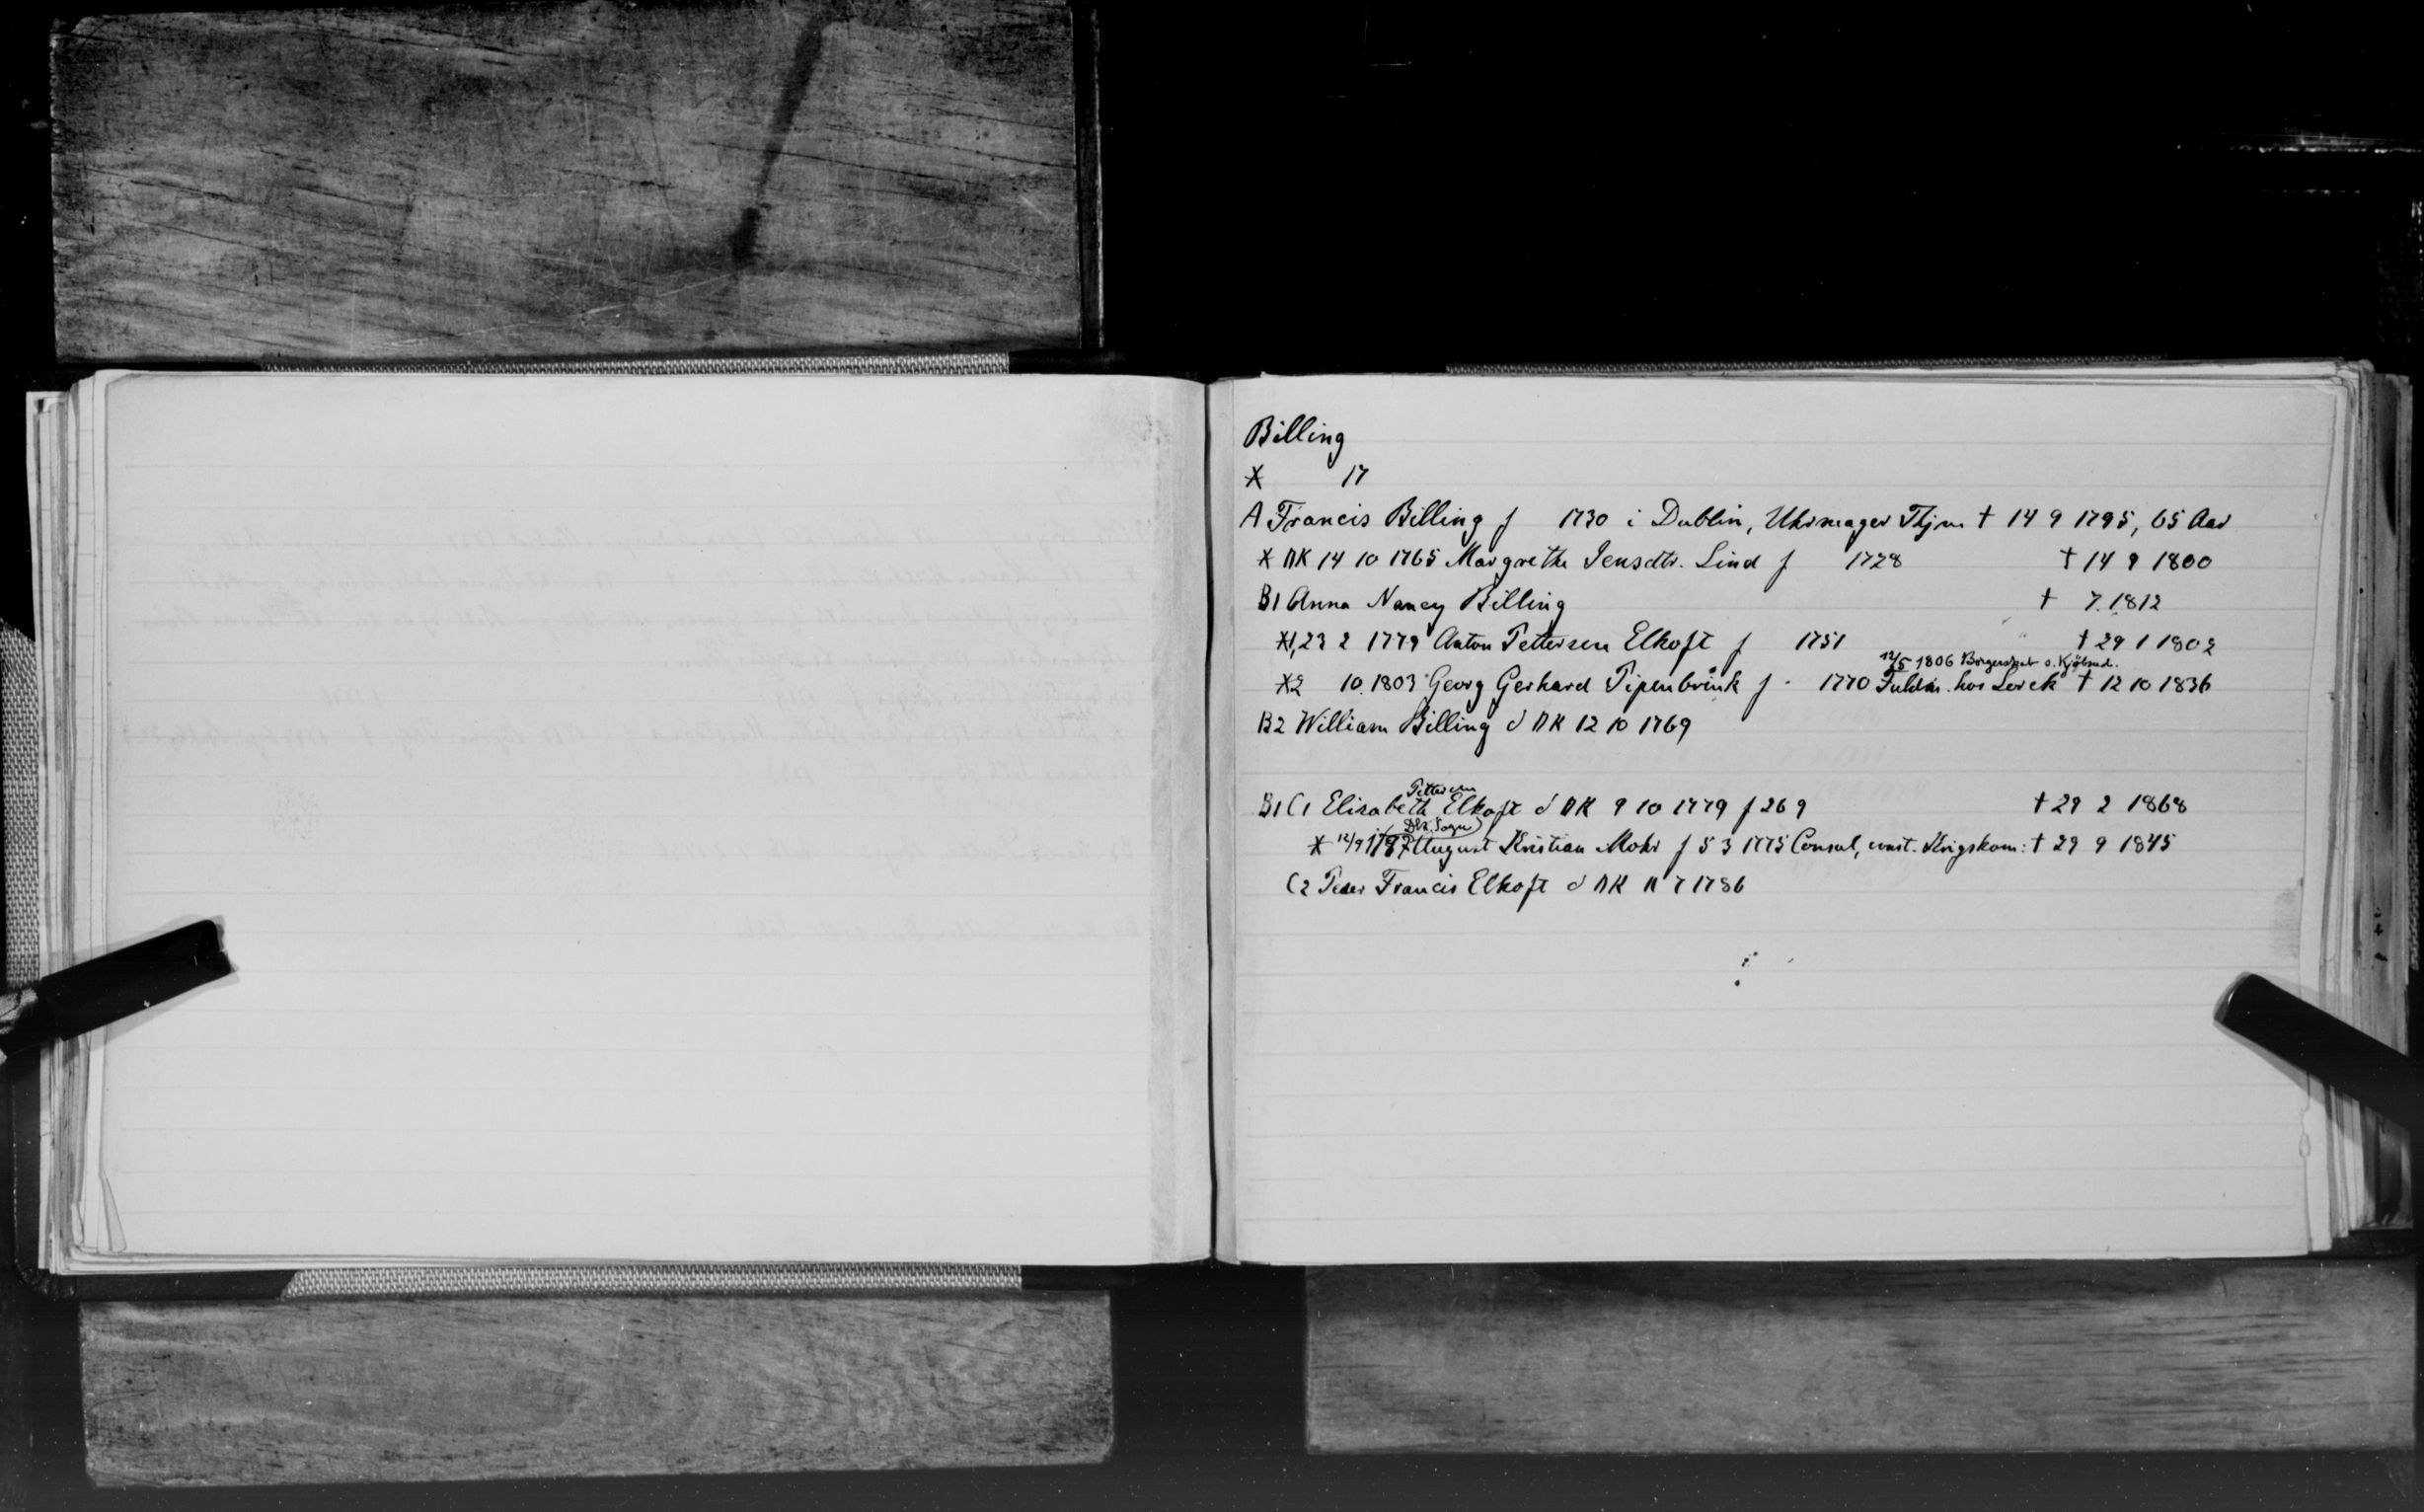 Billing
X 17
A Francis Billing f 1730 i Dublin, Uhrmager Thjm † 14 9 1795, 65 Aar
X DK 14 10 1765 Margrethe Jensdtr. Lind f 1728 † 14 9 1800
B1 Anna Nancy Billing † 7. 1812
X1, 23 2 1779 Anton Pettersen Elkoft f 1751 † 29 1 1802
12/5 1806 Borgerskab s. Kjøbmd.
X2 10. 1803 Georg Gerhard Pipenbrink f 1770 Fuldm. hos Lorck † 12 10 1836
B2 William Billing d DK 12 10 1769
Pettersen
B1 C1 Elisabeth Elkoft d DK 9 10 1779 f 26 9 † 29 2 1868
Dk. Sogn
X 12/9 1797 August Kristian Mohr f 5 3 1775 Consul, const. Krigskom: † 29 9 1845
C2 Peder Francis Elkoft d DK 11 7 1786